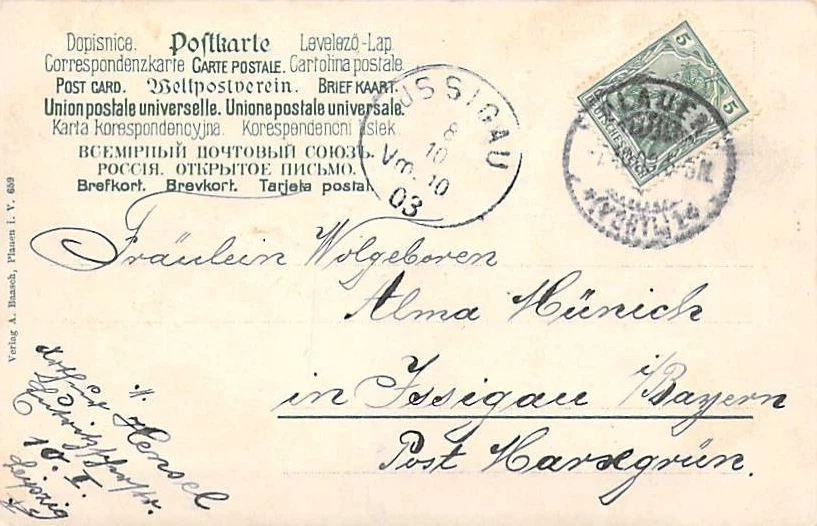 Dopisnice. Postkarte Levelező-Lap.
Correspondenzkarte CARTE POSTALE. Cartolina postale.
POST CARD. Weltpostverein. BRIEFKAART.
Union postale universelle. Unione postale universale.
Karta korespondencyjna. Korespondencni listek.
ВСЕМІРНЫЙ ПОЧТОВЫЙ СОЮЗЪ.
РОССІЯ. ОТКРЫТОЕ ПИСЬМО.
Brefkort. Brevkort. Tarjeta postal.
USSIGAU
8
10
Vm. 10
03
5
5
DEUTSCHES REICH
PLAUEN
(VOGTL.)
Verlag A. Baasch, Plauen i. V. 659
Fräulein Wolgeboren
Alma Münich
in Issigau i/Bayern
Post Marxgrün.
Hensel
10. I.
Leipzig